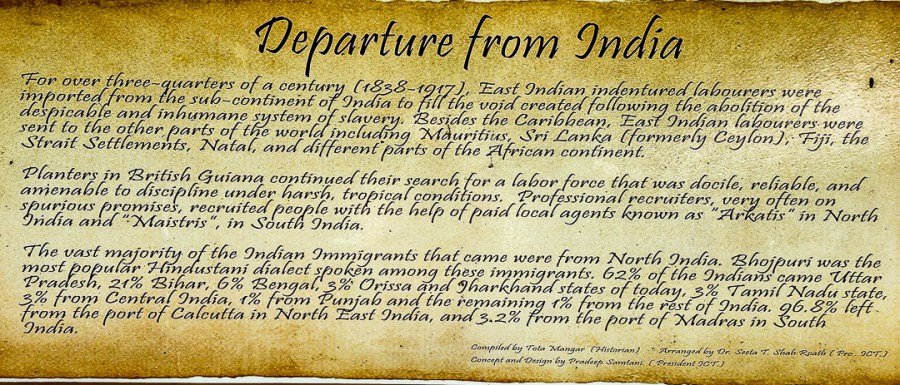 Departure from India
For over three-quarters of a century (1838-1917), East Indian indentured labourers were
imported from the sub-continent of India to fill the void created following the abolition of the
despicable and inhumane system of slavery. Besides the Caribbean, East Indian labourers were
sent to the other parts of the world including Mauritius, Sri Lanka (formerly Ceylon), Fiji, the
Strait Settlements, Natal, and different parts of the African continent.
Planters in British Guiana continued their search for a labor force that was docile, reliable, and
amenable to discipline under harsh, tropical conditions. Professional recruiters, very often on
spurious promises, recruited people with the help of paid local agents known as "Arkatis" in North
India and "Maistris", in South India.
The vast majority of the Indian Immigrants that came were from North India. Bhojpuri was the
most popular Hindustani dialect spoken among these immigrants. 62% of the Indians came Uttar
Pradesh, 21% Bihar, 6% Bengal, 3% Orissa and Jharkhand states of today, 3% Tamil Nadu state,
3% from Central India, 1% from Punjab and the remaining 1% from the rest of India. 96.8% left
from the port of Calcutta in North East India, and 3.2% from the port of Madras in South
India.
Compiled by Tota Mangar (Historian) - Arranged by Dr. Seeta T. Shah Roath ( Pro. ICT.)
Concept and Design by Pradeep Samtani. ( President ICT.)